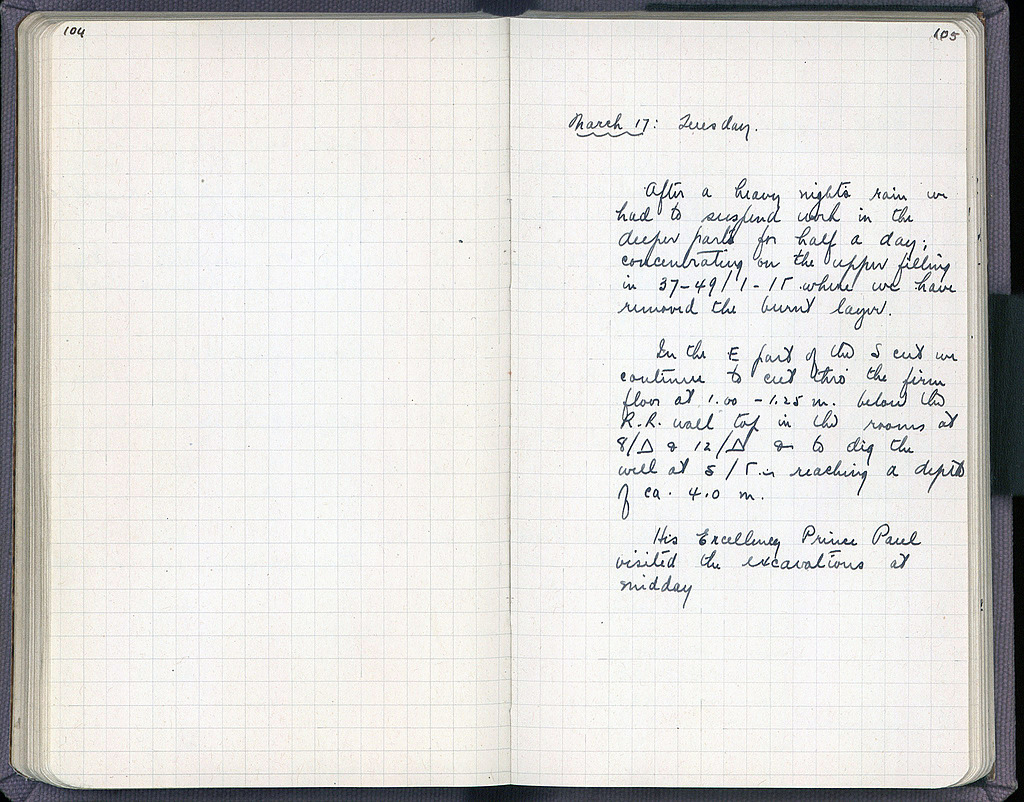 104
105
March 17: Tuesday.
After a heavy night's rain we
had to suspend work in the
deeper parts for half a day,
concentrating on the upper filling
in 37-49/1-15 where we have
removed the burnt layer.
In the E part of the S cut we
continue to cut thro' the firm
floor at 1.00 - 1.25 m. below the
R.R. wall top in the rooms at
8/Δ & 12/Δ & to dig the
well at 5/Γ reaching a depth
of ca. 4.0 m.
His Excellency Prince Paul
visited the excavations at
midday